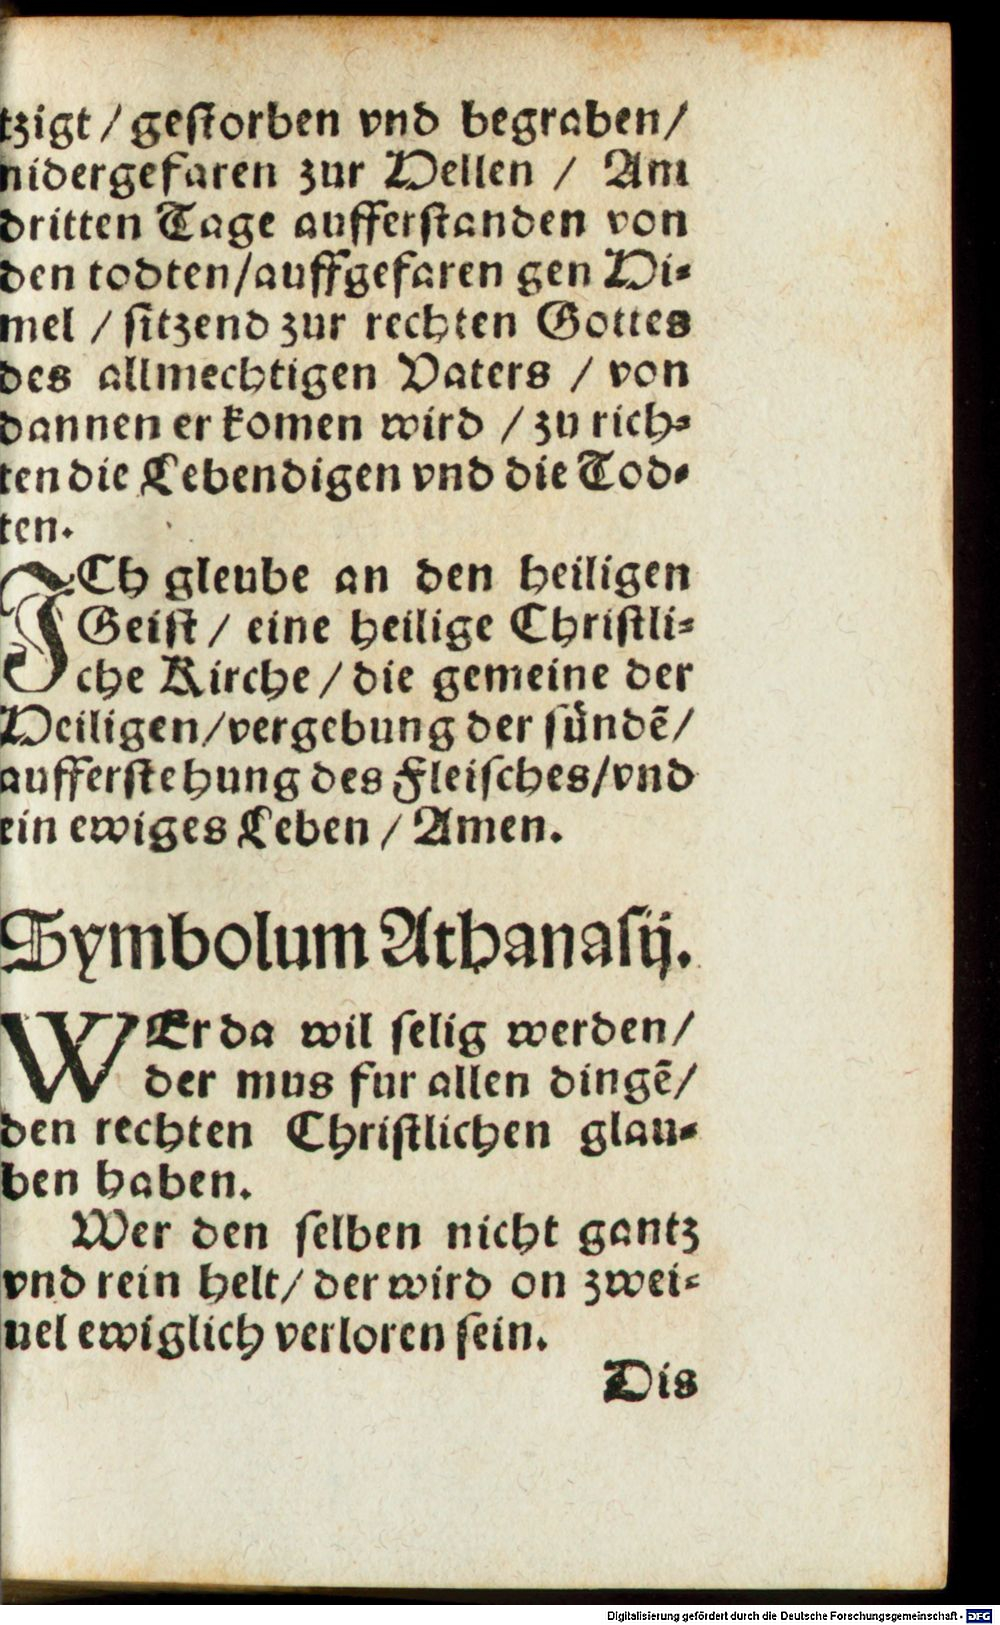 tzigt / geſtorben vnd begraben /
nidergefaren zur Hellen / Am
dritten Tage aufferſtanden von
den todten / auffgefaren gen Hi⸗
mel / ſitzend zur rechten Gottes
des allmechtigen Vaters / von
dannen er komen wird / zu rich⸗
ten die Lebendigen vnd die Tod⸗
ten.
JCh gleube an den heiligen
Geiſt / eine heilige Chriſtli⸗
che Kirche / die gemeine der
Heiligen / vergebung der ſündē /
aufferſtehung des Fleiſches / vnd
ein ewiges Leben / Amen.
Symbolum Athanaſij.
WEr da wil ſelig werden /
der mus fur allen dingē /
den rechten Chriſtlichen glau⸗
ben haben.
Wer den ſelben nicht gantz
vnd rein helt / der wird on zwei⸗
uel ewiglich verloren ſein.
Dis
Digitalisierung gefördert durch die Deutsche Forschungsgemeinschaft - DFG